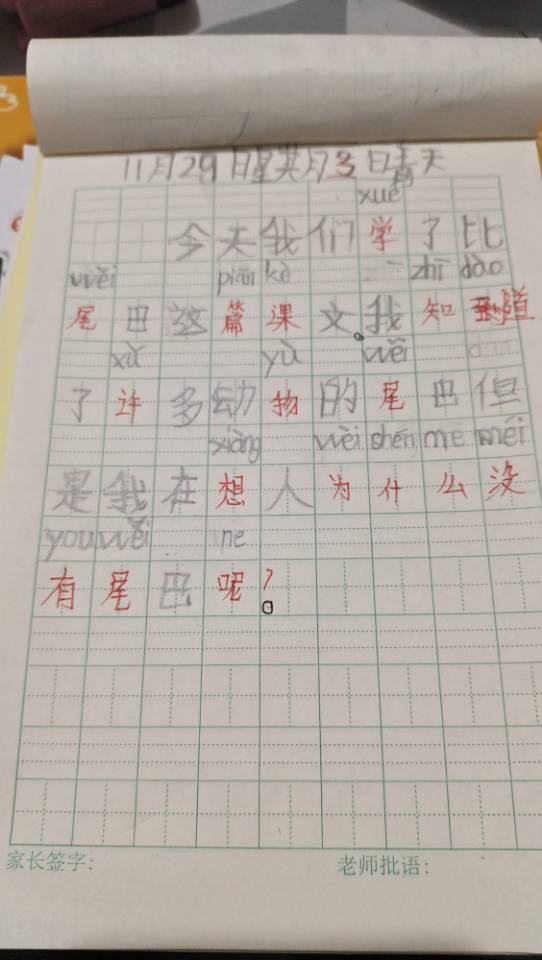 11月29日星其月3日晴天
xué
今天我们学了比
wěi piān kè zhī dào
尾巴这篇课文。我知道
xǔ yù wěi
了许多动物的尾巴但
xiàng wèi shén me méi
是我在想人为什么没
you wěi ne
有尾巴呢?
家长签字:
老师批语: